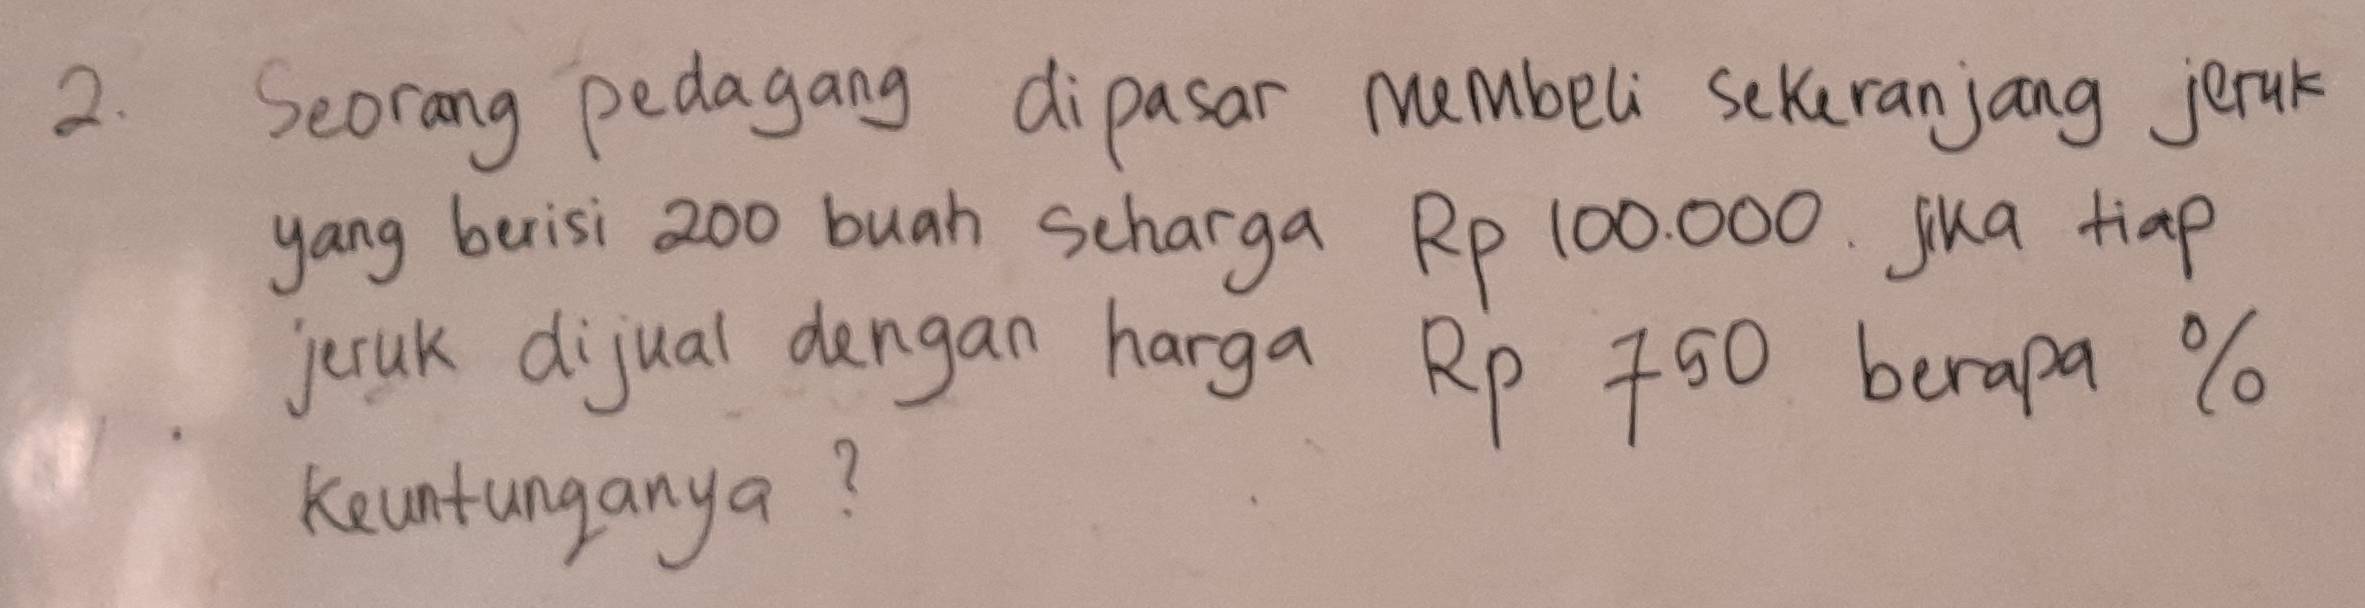 2. Seorang pedagang dipasar membeli sekeranjang jeruk
yang berisi 200 buah seharga Rp 100.000. jika tiap
jeruk dijual dengan harga Rp 750 berapa %
keuntunganya ?